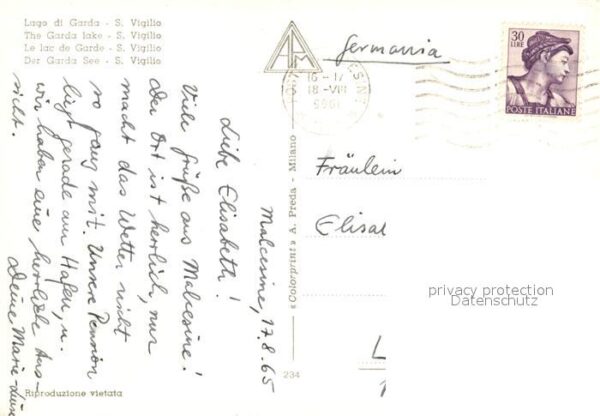 Lago di Garda - S. Vigilio
The Garda lake - S. Vigilio
Le lac de Garde - S. Vigilio
Der Garda See - S. Vigilio
Malcesine, 17.8.65
Liebe Elisabeth!
Viele Grüße aus Malcesine!
Der Ort ist herrlich, nur
macht das Wetter nicht
so ganz mit. Unsere Pension
liegt gerade am Hafen, u.
wir haben eine herrliche Aus-
sicht.
Deine Marie-Luise
Riproduzione vietata
APM
234 «Colorprint» A. Preda - Milano
Germania
16-17
18-VIII
30
LIRE
POSTE ITALIANE
Fräulein
Elisa
L
privacy protection
Datenschutz